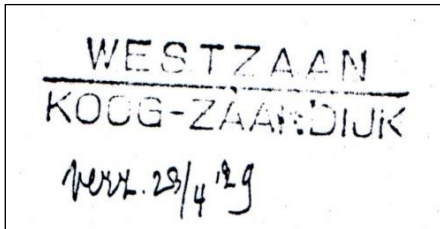 WESTZAAN
KOOG-ZAANDIJK
verz. 23/4 '29